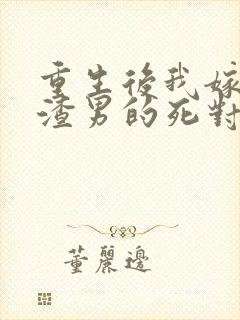 重生後我嫁
渣男的死對
董麗邊